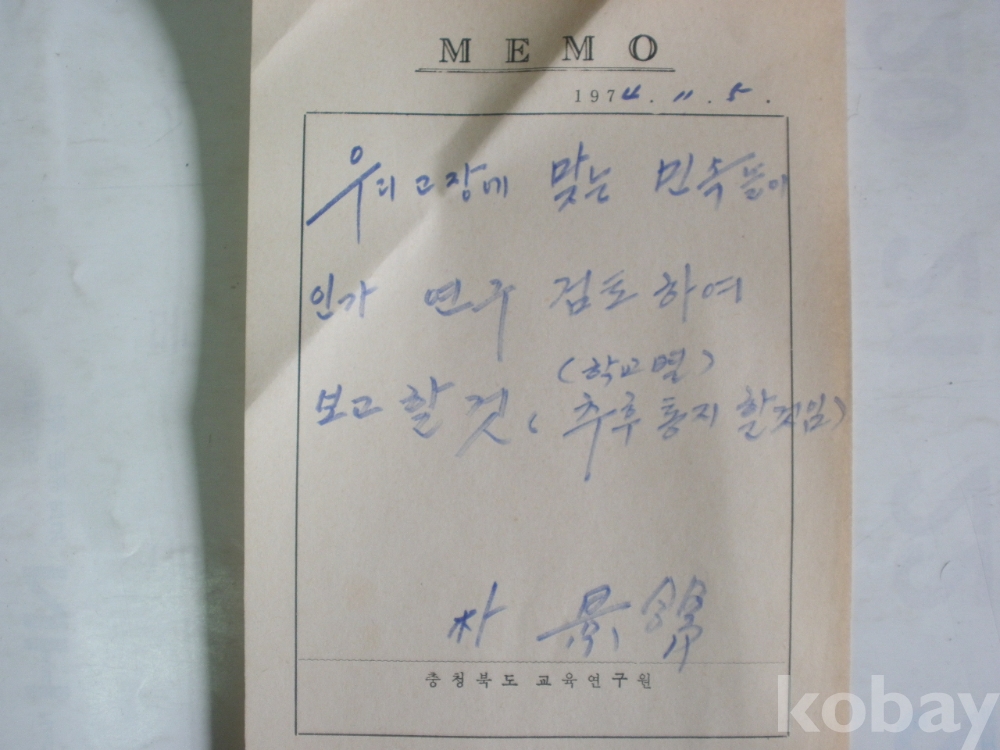 MEMO
1974. 11. 5.
우리고장에 맞는 민속들이
인가 연구 검토하여
(학교별)
보고할것 (추후통지할것임)
朴 景錦
충청북도 교육연구원
kobay